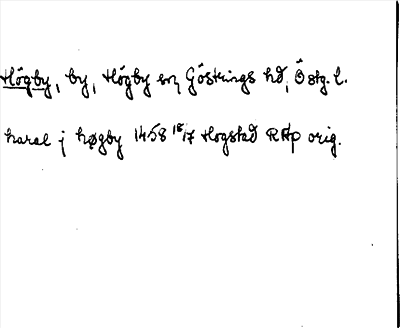 Högby, by, Högby sn, Göstrings hd, Östg. l.
haral j høgby 1458 18/7 Hogstad RAp orig.